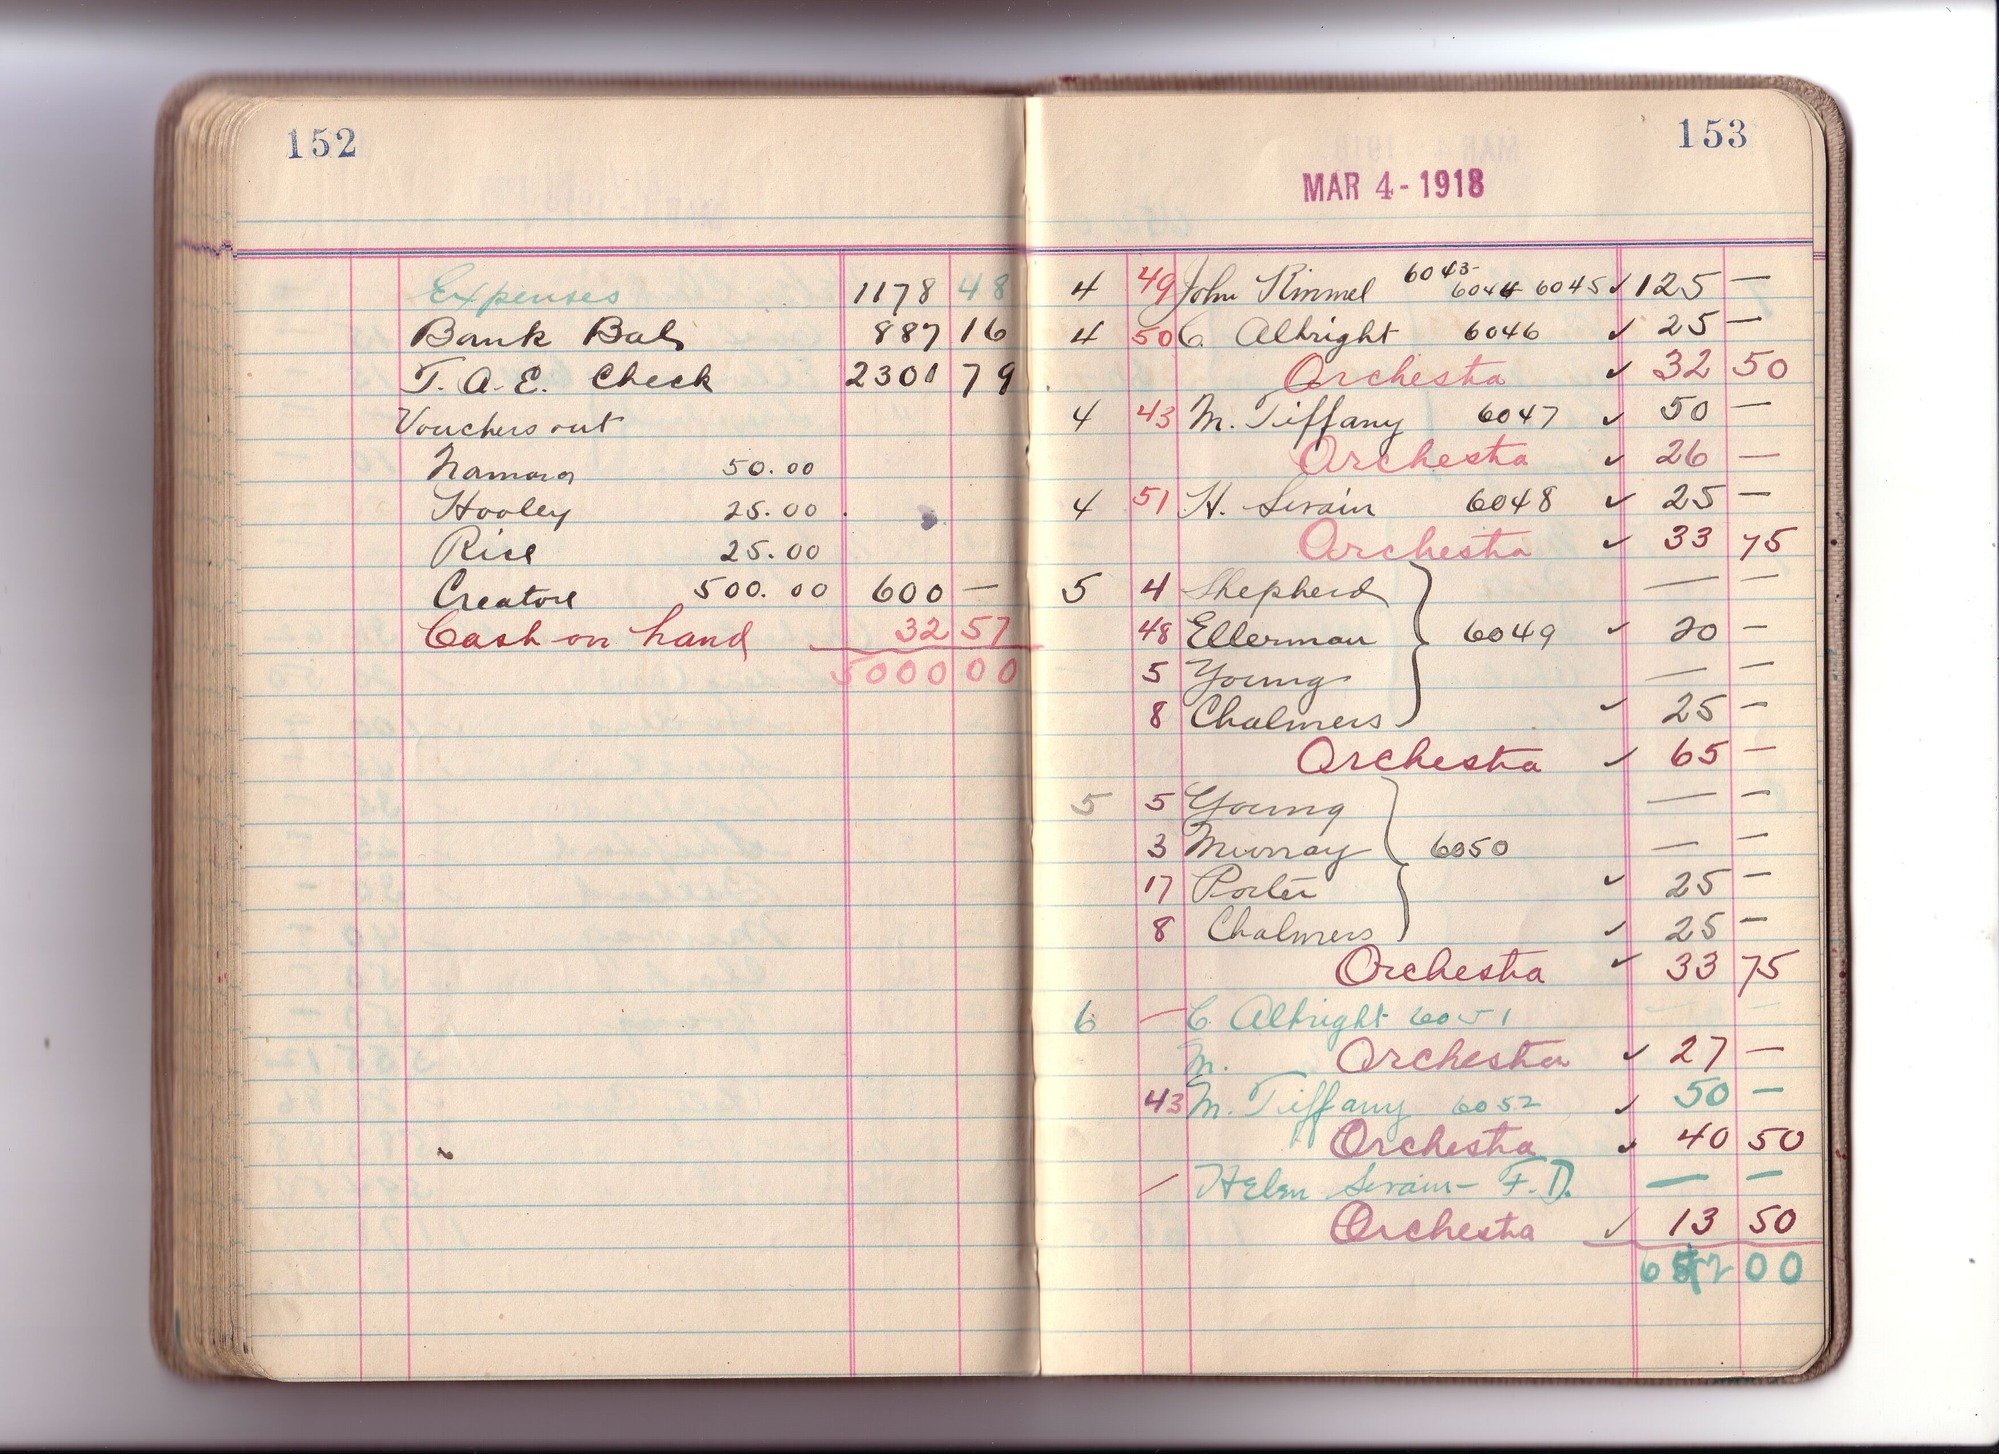 152
Expenses 1178 48
Bank Bal 887 16
T. A. E. Check 2301 79
Vouchers out
Namara 50.00
Hooley 25.00
Rice 25.00
Creatore 500.00 600 —
Cash on hand 32 57
5000 00
153
MAR 4 - 1918
4 49 John Kimmel 6043- 6044 6045 ✓ 125 —
4 50 C. Albright 6046 ✓ 25 —
Orchestra ✓ 32 50
4 43 M. Tiffany 6047 ✓ 50 —
Orchestra ✓ 26 —
4 51 H. Swain 6048 ✓ 25 —
Orchestra ✓ 33 75
5 4 Shepherd — —
48 Ellerman 6049 ✓ 20 —
5 Young — —
8 Chalmers ✓ 25 —
Orchestra ✓ 65 —
5 5 Young — —
3 Murray 6050 — —
17 Porter ✓ 25 —
8 Chalmers ✓ 25 —
Orchestra ✓ 33 75
6 — C. Albright 6051
M. Orchestra ✓ 27 —
43 M. Tiffany 6052 ✓ 50 —
Orchestra ✓ 40 50
— Helen Swain - F. D. — —
Orchestra ✓ 13 50
00